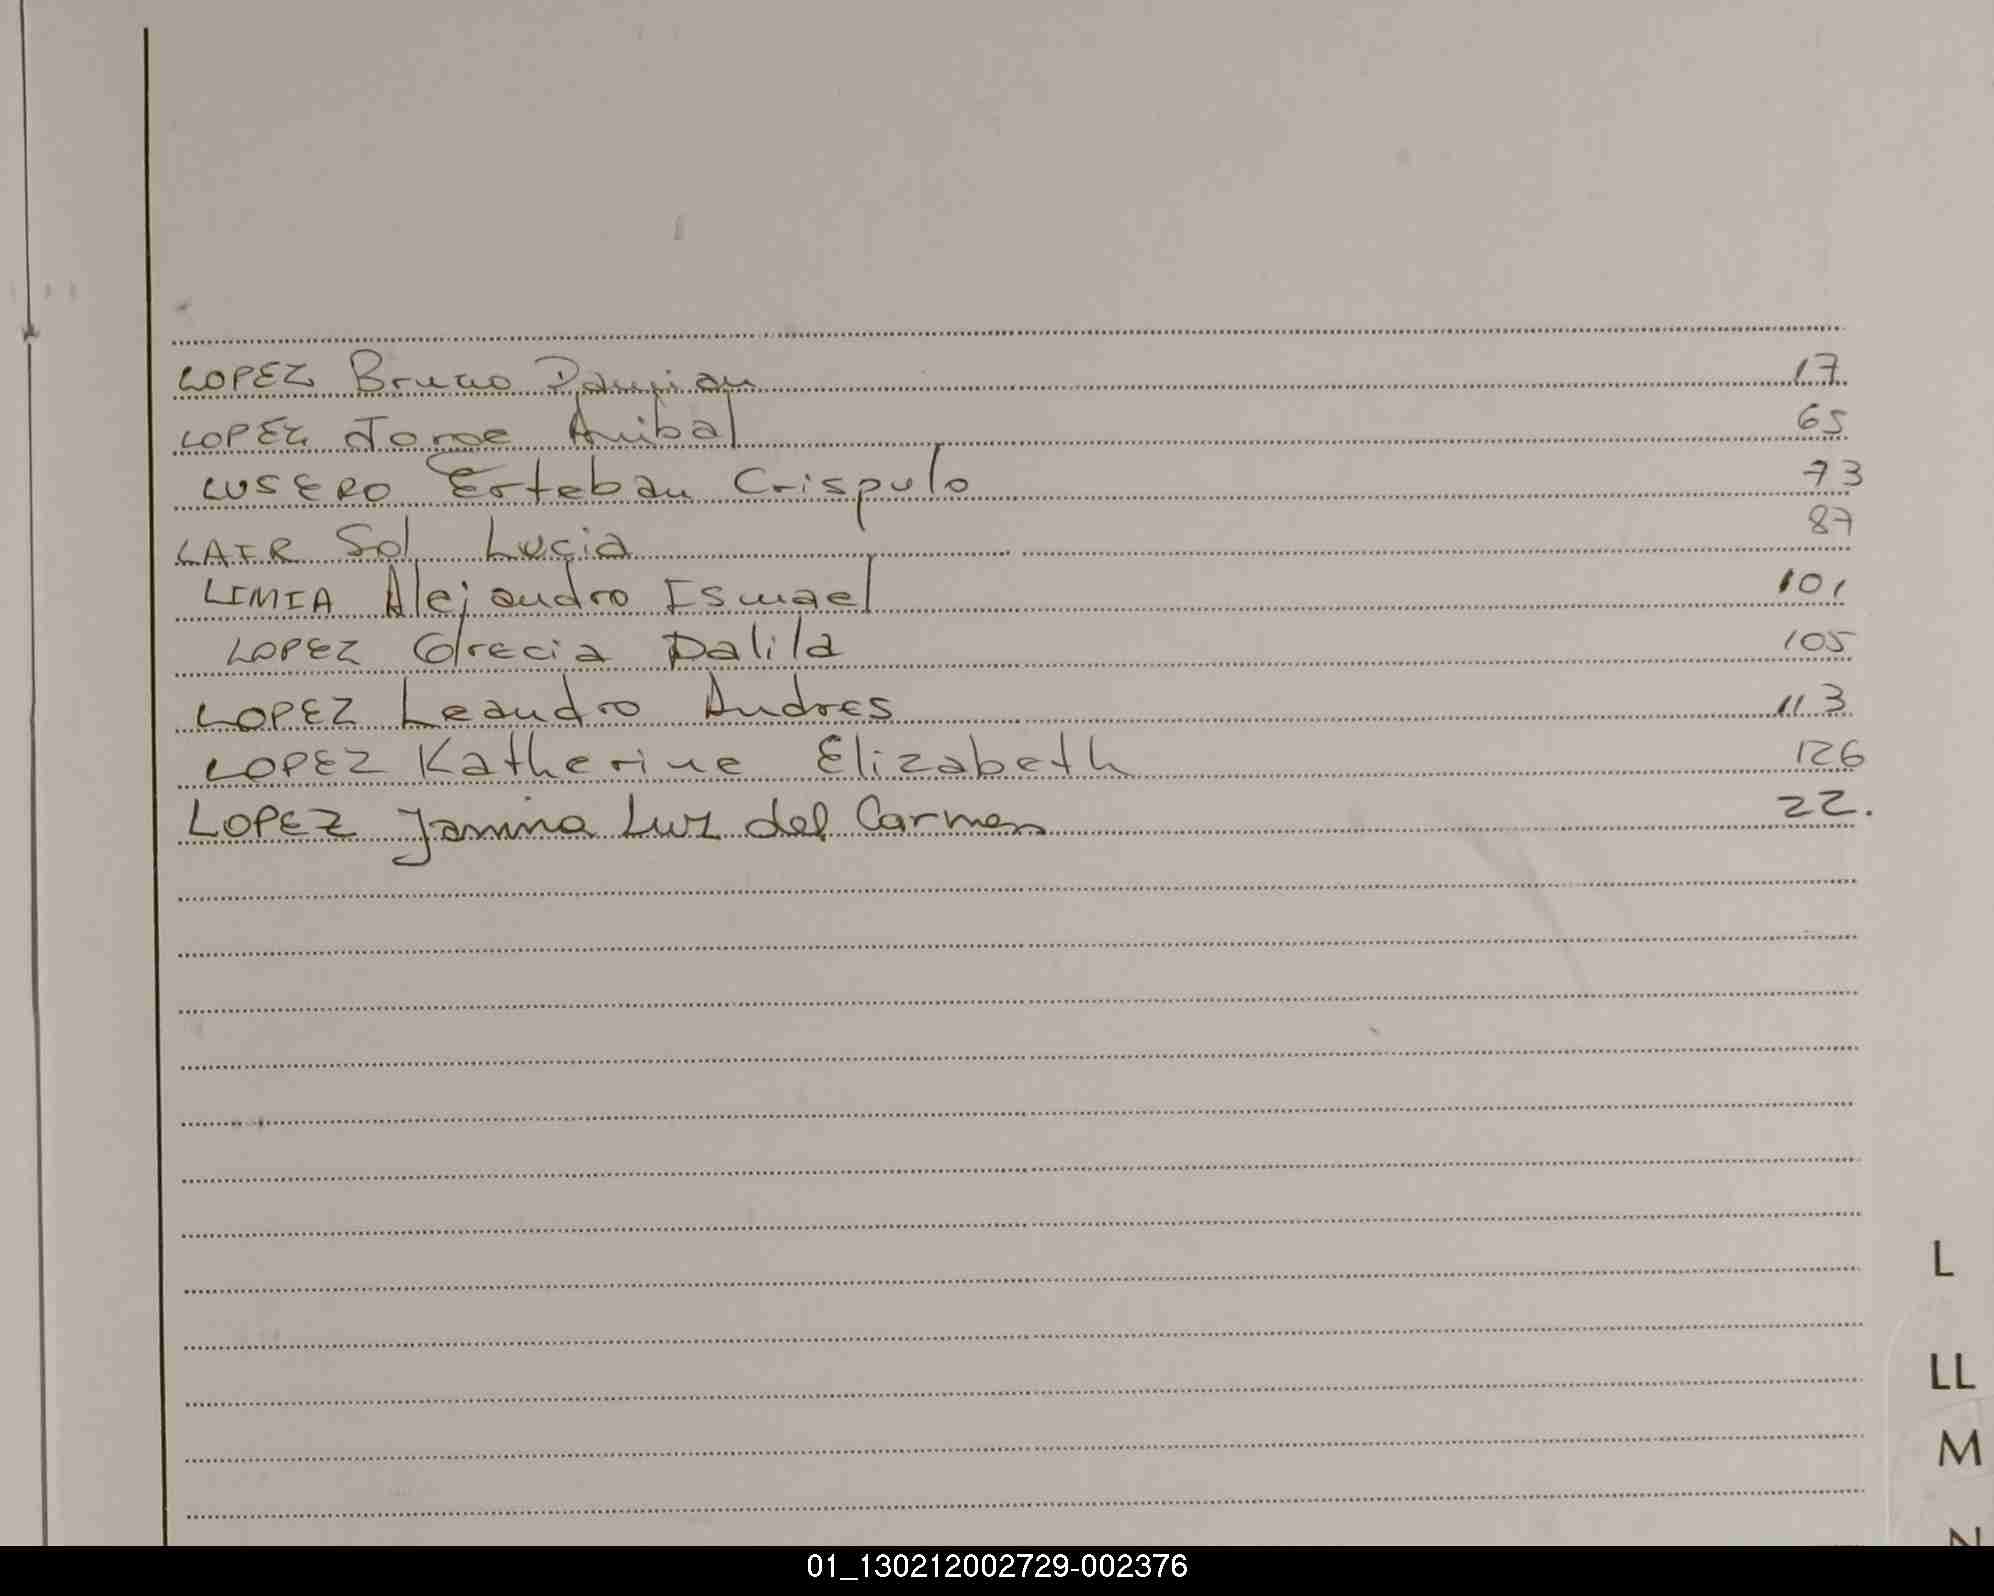 LOPEZ Bruno Damian 17
LOPEZ Jorge Anibal 65
LUSERO Esteban Crispulo 73
LAIR Sol Lucia 87
LIMIA Alejandro Ismael 101
LOPEZ Grecia Dalila 105
LOPEZ Leandro Andres 113
LOPEZ Katherine Elizabeth 126
LOPEZ Janina Luz del Carmen 22.
L
LL
M
N
01_130212002729-002376